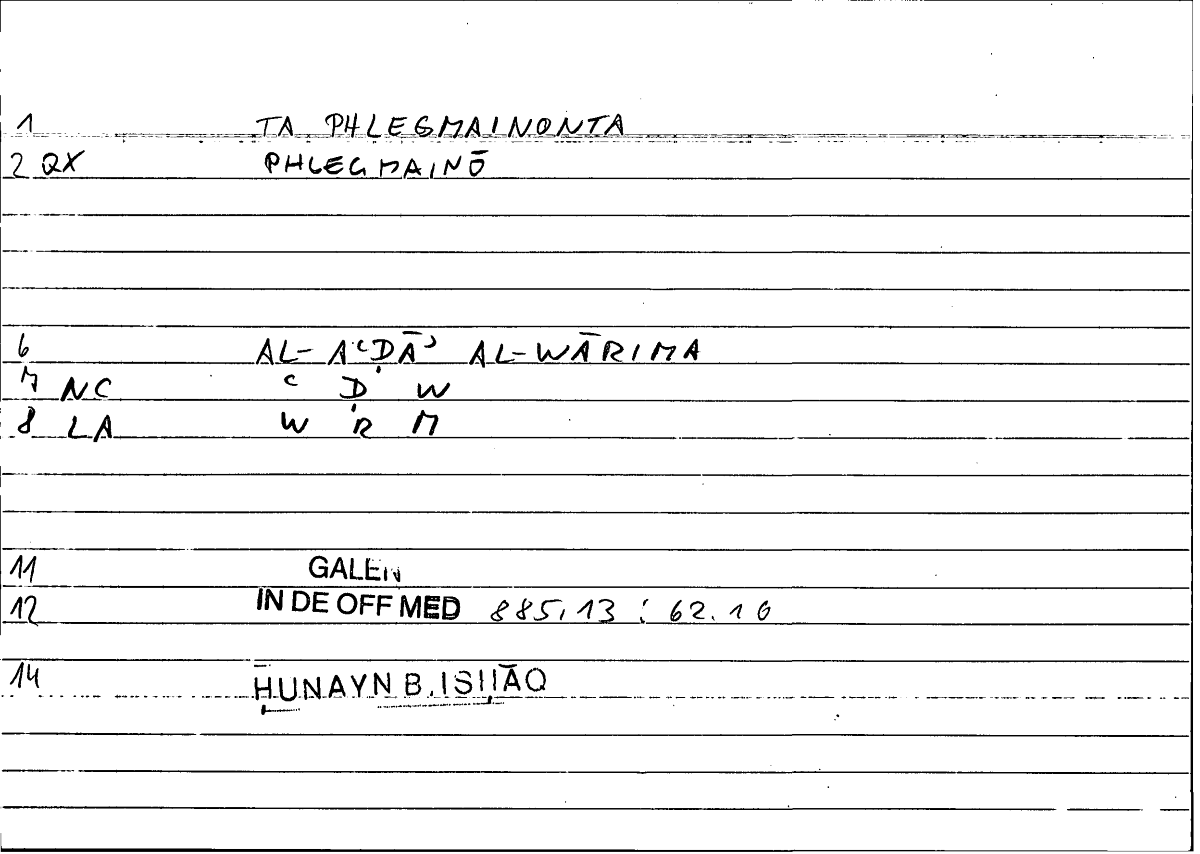 1 TA PHLEGMAINONTA
2 QX PHLEGMAINŌ
6 AL-AʿḌĀʾ AL-WĀRIMA
7 NC ʿ Ḍ W
8 LA W R M
11 GALEN
12 IN DE OFF MED 885,13 : 62.16
14 ḤUNAYN B. ISḤĀQ